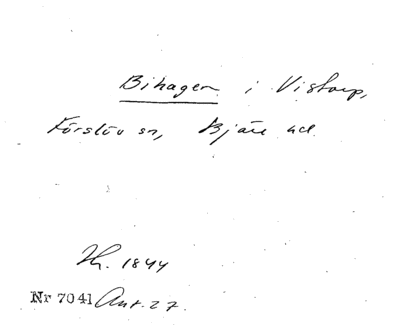 Bihagen i Vistorp,
Förslöv sn, Bjäre hd.
Th. 1844
Nr 7041 Ant. 27.